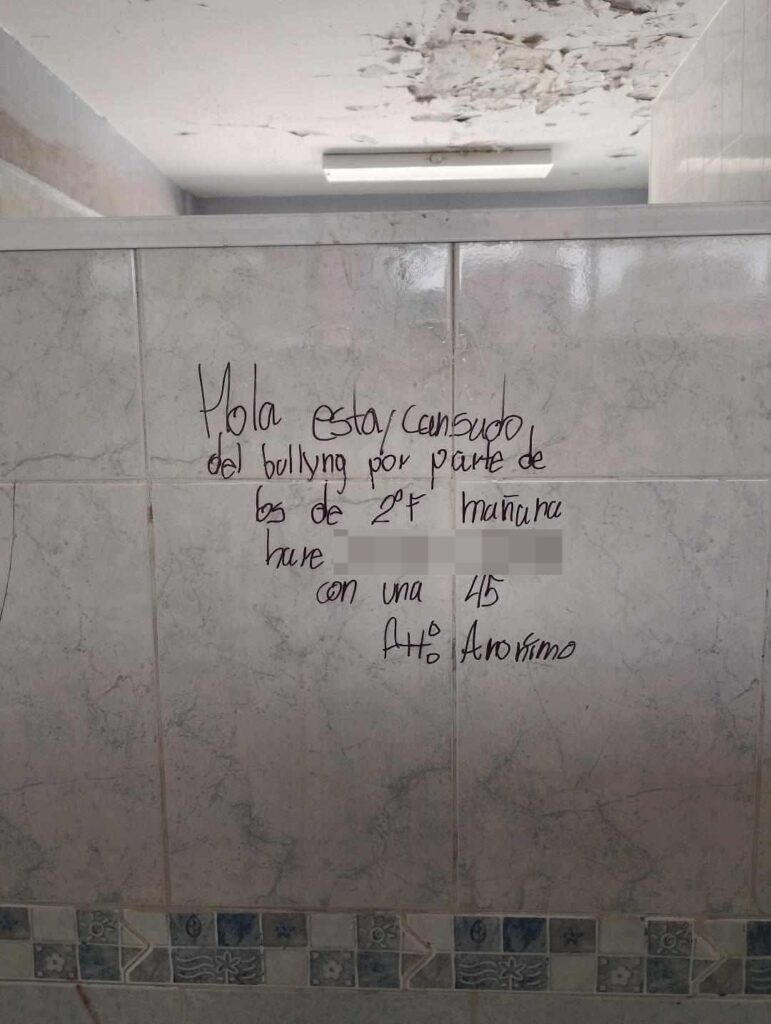 Hola estoy cansado
del bullyng por parte de
los de 2°F mañana
hare
con una 45
Att: Anonimo